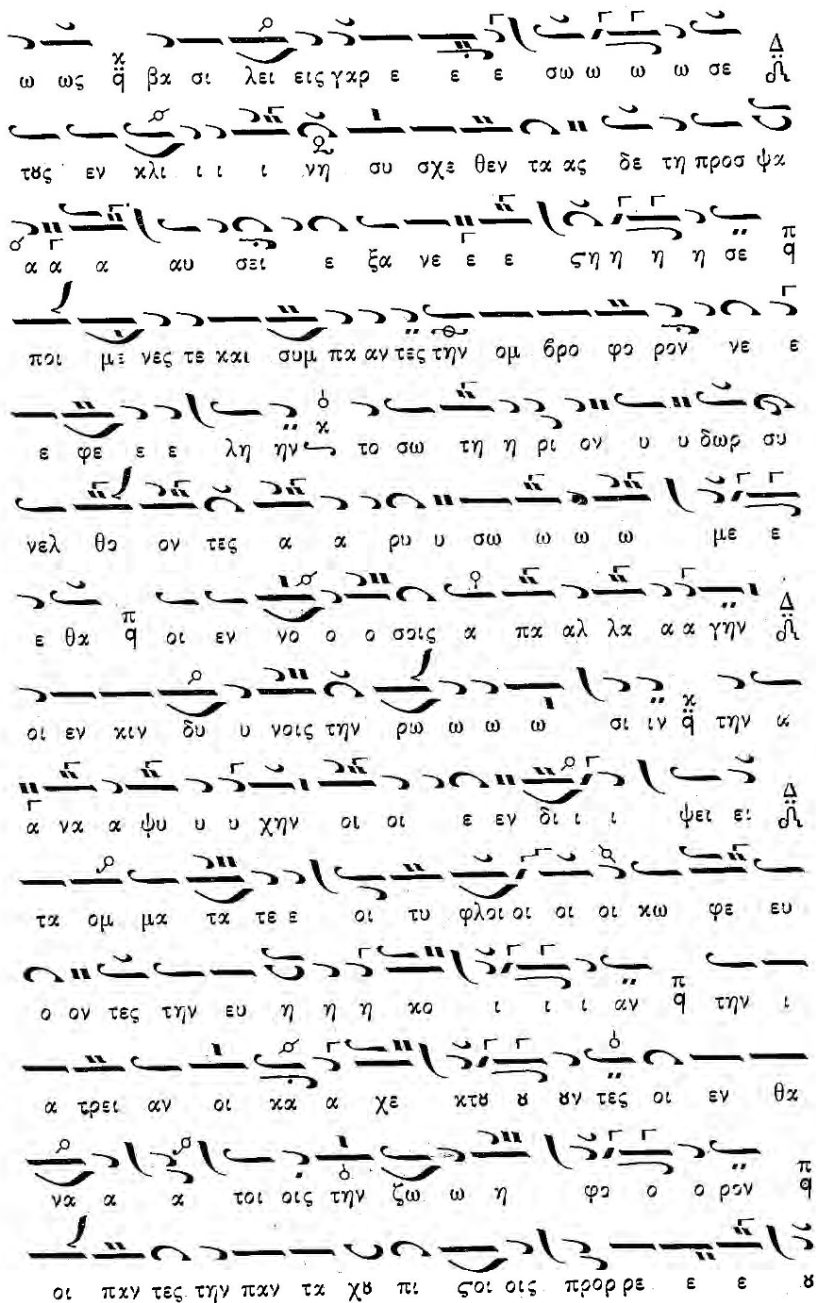 ω ως κ q βα σι λει εις γαρ ε ε ε σω ω ω ω σε Δ
τȣς εν κλι ι ι ι νη συ σχε θεν τα ας δε τη προσ ψα
α α α αυ σει ε ξα νε ε ε ϛη η η η σε π q
ποι με νες τε και συμ πα αν τες την ομ βρο φο ρον νε ε
ε φε ε ε λη ην κ το σω τη η ρι ον υ υ δωρ συ
νελ θο ον τες α α ρυ υ σω ω ω ω με ε
ε θα π q οι εν νο ο ο σοις α πα αλ λα α α γην Δ
οι εν κιν δυ υ νοις την ρω ω ω ω σι ιν κ q την α
α να α ψυ υ υ χην οι οι ε εν δι ι ι ψει ει Δ
τα ομ μα τα τε ε οι τυ φλοι οι οι οι κω φε ευ
ο ον τες την ευ η η η κο ι ι ι αν π q την ι
α τρει αν οι κα α χε κτȣ ȣ ȣν τες οι εν θα
να α α τοι οις την ζω ω η φο ο ο ρον π q
οι παν τες την παν τα χȣ πι ϛοι οις προρ ρε ε ε ȣ